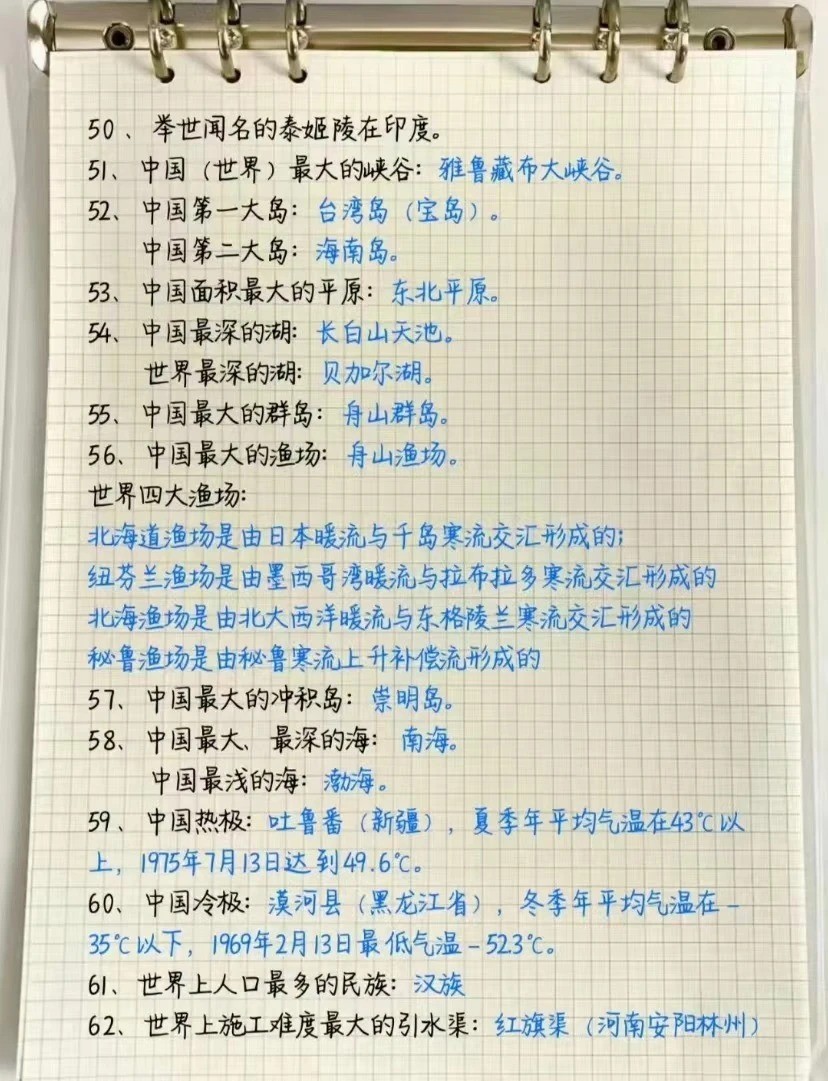 50、举世闻名的泰姬陵在印度。
51、中国（世界）最大的峡谷：雅鲁藏布大峡谷。
52、中国第一大岛：台湾岛（宝岛）。
中国第二大岛：海南岛。
53、中国面积最大的平原：东北平原。
54、中国最深的湖：长白山天池。
世界最深的湖：贝加尔湖。
55、中国最大的群岛：舟山群岛。
56、中国最大的渔场：舟山渔场。
世界四大渔场：
北海道渔场是由日本暖流与千岛寒流交汇形成的；
纽芬兰渔场是由墨西哥湾暖流与拉布拉多寒流交汇形成的
北海渔场是由北大西洋暖流与东格陵兰寒流交汇形成的
秘鲁渔场是由秘鲁寒流上升补偿流形成的
57、中国最大的冲积岛：崇明岛。
58、中国最大、最深的海：南海。
中国最浅的海：渤海。
59、中国热极：吐鲁番（新疆），夏季年平均气温在43℃以
上，1975年7月13日达到49.6℃。
60、中国冷极：漠河县（黑龙江省），冬季年平均气温在-
35℃以下，1969年2月13日最低气温-52.3℃。
61、世界上人口最多的民族：汉族
62、世界上施工难度最大的引水渠：红旗渠（河南安阳林州）